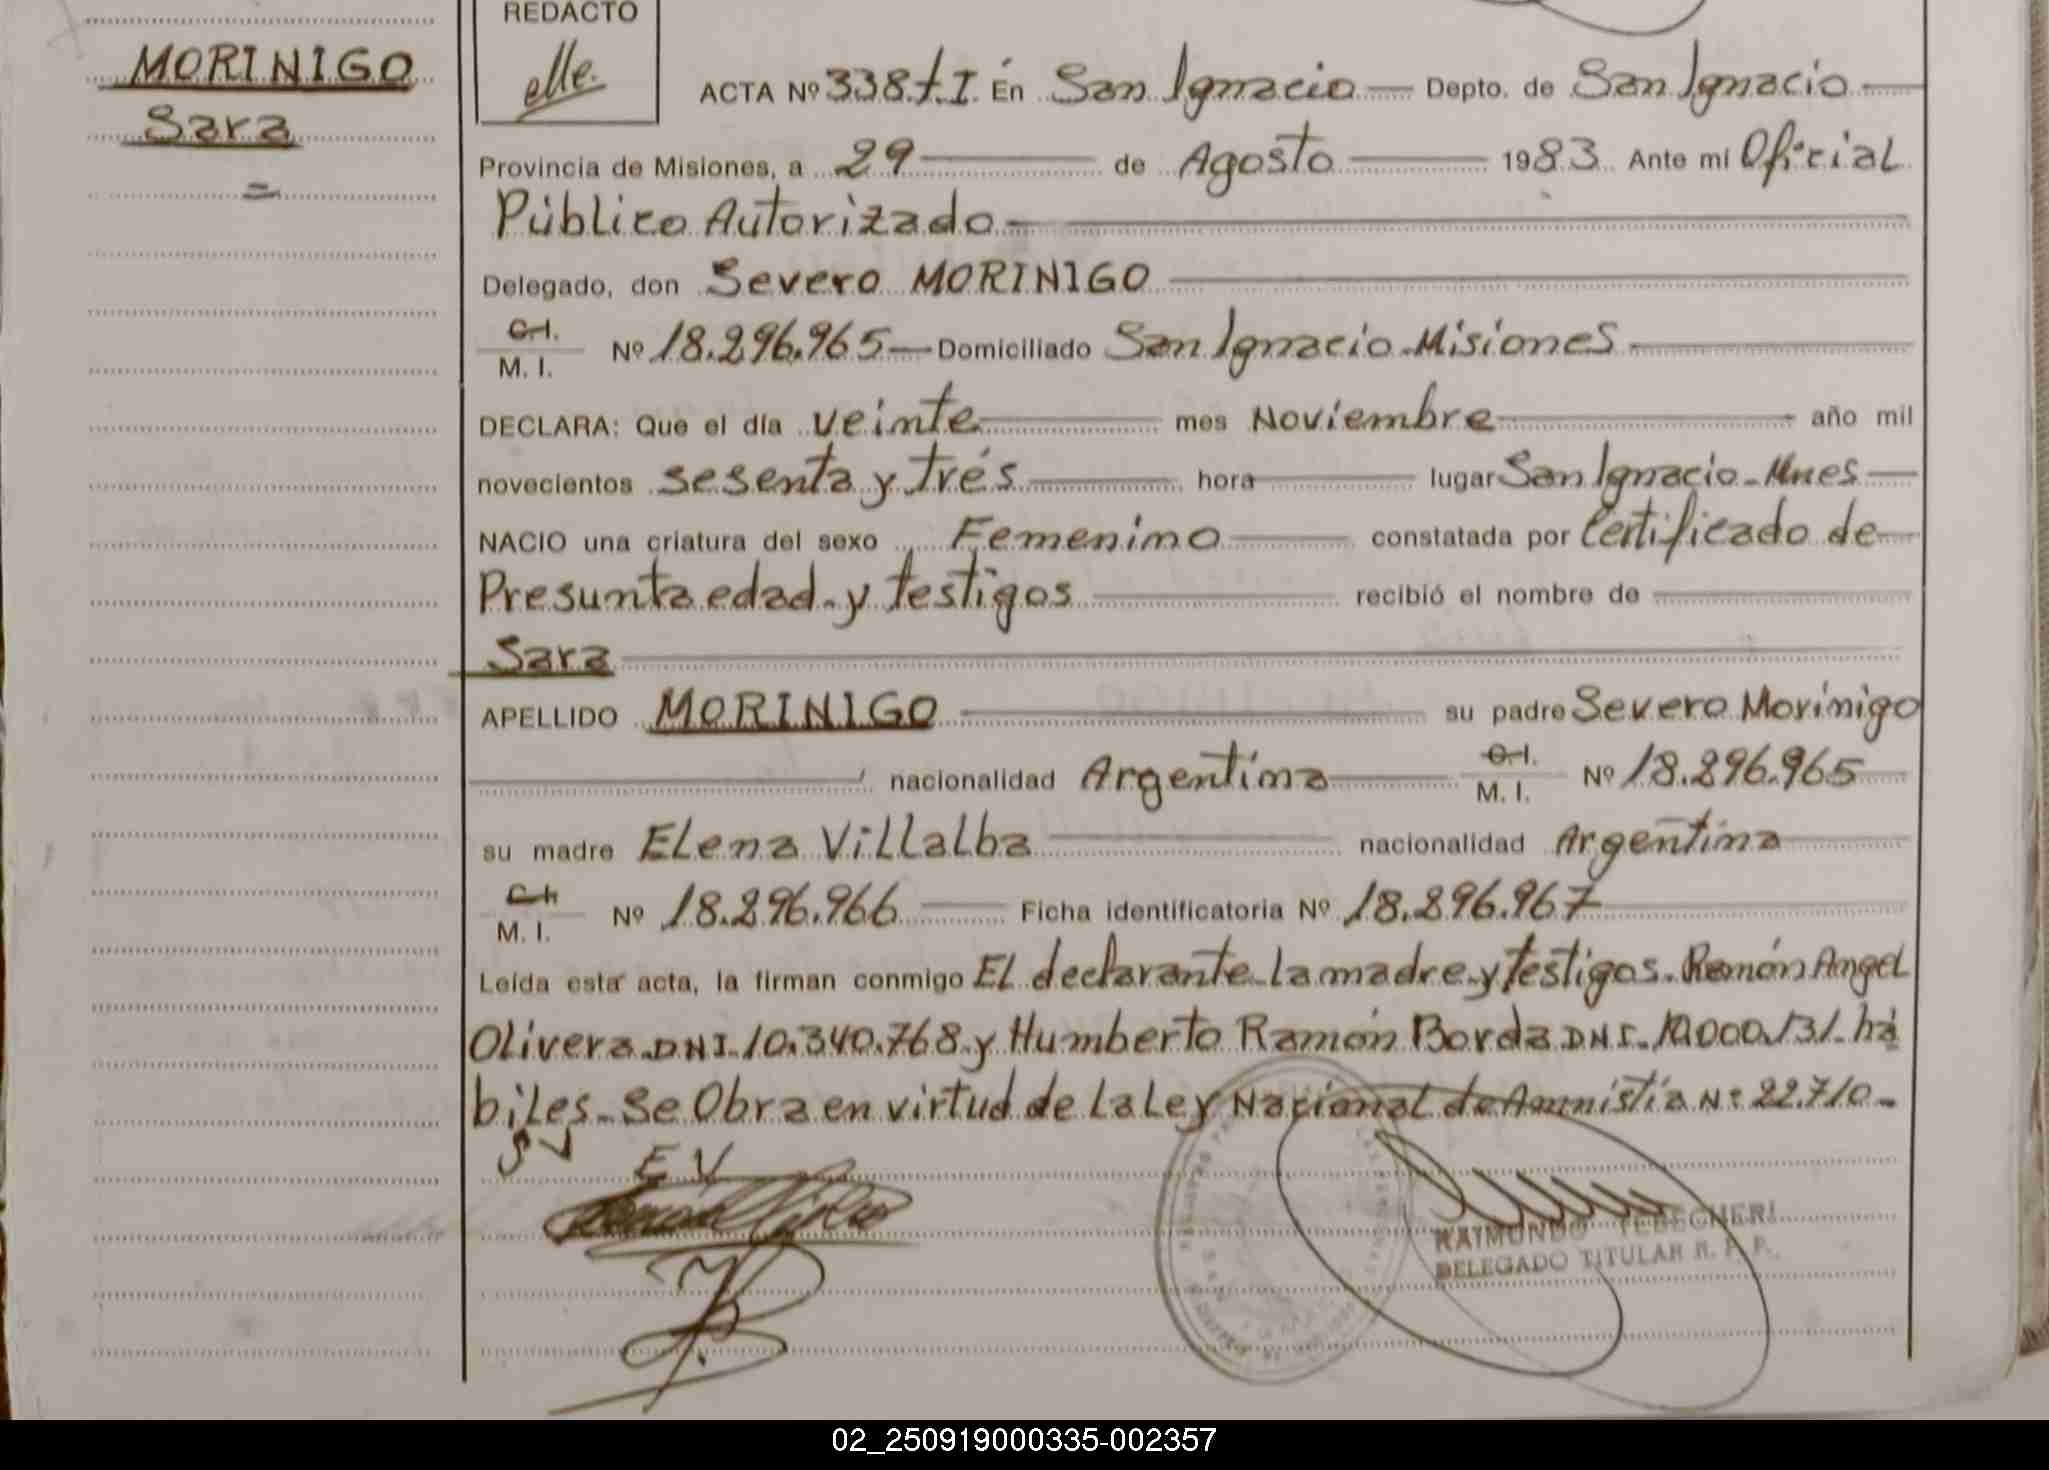 MORINIGO
Sara
=
REDACTO
elle.
ACTA Nº 338.t.I. En San Ignacio — Depto. de San Ignacio —
Provincia de Misiones, a 29 — de Agosto — 1983. Ante mí Oficial
Público Autorizado —
Delegado, don Severo MORINIGO —
C.I.
M. I. Nº 18.296.965 — Domiciliado San Ignacio - Misiones —
DECLARA: Que el día veinte — mes Noviembre — año mil
novecientos sesenta y trés — hora — lugar San Ignacio - Mnes —
NACIO una criatura del sexo Femenino — constatada por Certificado de —
Presunta edad - y testigos — recibió el nombre de —
Sara —
APELLIDO MORINIGO — su padre Severo Morínigo
— nacionalidad Argentina — C.I.
M. I. Nº 18.296.965
su madre Elena Villalba — nacionalidad Argentina —
C.I.
M. I. Nº 18.296.966 — Ficha identificatoria Nº 18.296.967 —
Leída esta acta, la firman conmigo El declarante - la madre - y testigos. Ramón Angel
Olivera DNI. 10.340.768 - y Humberto Ramón Borda DNI. 10.000.131 - há
biles. Se Obra en virtud de la Ley Nacional de Amnistía Nº 22.710 -
E V
RAIMUNDO TEBECHERI
DELEGADO TITULAR R. P. P.
02_250919000335-002357